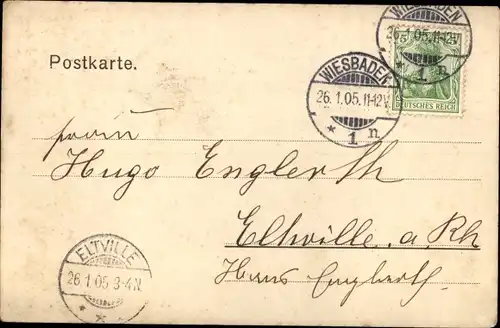 WIESBADEN
26.1.05.11-12V.
* 1 n
DEUTSCHES REICH
Postkarte.
WIESBADEN
26.1.05.11-12V.
* 1 n
Hugo Englerth
Eltville a. Rh
Haus Englerth
ELTVILLE
26.1.05 3-4N.
* *